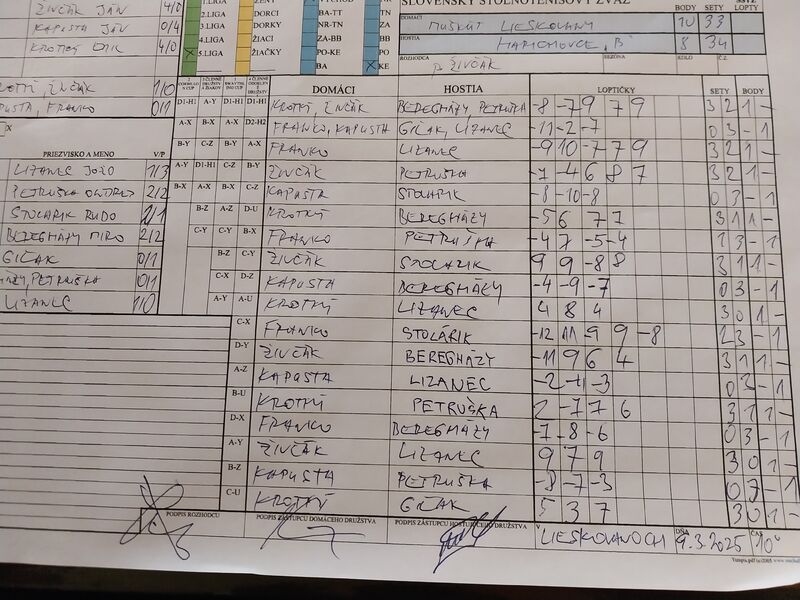 SLOVENSKÝ STOLNOTENISOVÝ ZVÄZ
DOMÁCI MUŠKÁT LIESKOVANY BODY 10 SETY 33 LOPTY
HOSTIA HARICHOVCE "B" 8 34
ROZHODCA P. ŽIVČÁK SEZÓNA KOLO Č.Z.
1.LIGA
2.LIGA DORCI BA-TT
3.LIGA ŽENY NR-TN ZA
4.LIGA ŽIACI ZA-BB
X 5.LIGA ŽIAČKY PO-KE
BA X KE
ŽIVČÁK JÁN 4/0
KAPUSTA JÁN 0/4
KROTKÝ 4/0
ŽIVČÁK 1/0
FRANKO 0/1
PRIEZVISKO A MENO V/P
LIZANEC JOŽO 1/3
PETRUŠKA ONDREJ 2/2
STOLÁRIK RUDO 2/1
BEREGHÁZY MIRO 2/2
GIČAK 0/1
PETRUŠKA 0/1
LIZANEC 1/0
DOMÁCI HOSTIA LOPTIČKY SETY BODY
D1-H1 A-Y D1-H1 D1-H1 KROTKÝ, ŽIVČÁK BEREGHÁZY, PETRUŠKA -8 -7 9 7 9 3 2 1 -
A-X B-X A-X D2-H2 FRANKO, KAPUSTA GIČAK, LIZANEC -11 -2 -7 0 3 - 1
B-Y C-Z B-Y A-X FRANKO LIZANEC -9 10 -7 7 9 3 2 1 -
A-Y D1-H1 C-Z B-Y ŽIVČÁK PETRUŠKA -7 -4 6 8 7 3 2 1 -
B-X A-X B-X C-Z KAPUSTA STOLÁRIK -8 -10 -8 0 3 - 1
B-Z A-Z D-U KROTKÝ BEREGHÁZY -5 6 7 7 3 1 1 -
C-Y C-Y B-X FRANKO PETRUŠKA -4 7 -5 -4 1 3 - 1
B-Z C-Y ŽIVČÁK STOLÁRIK 9 9 -8 8 3 1 1 -
C-X D-Z KAPUSTA BEREGHÁZY -4 -9 -7 0 3 - 1
A-Y A-U KROTKÝ LIZANEC 4 8 4 3 0 1 -
C-X FRANKO STOLÁRIK -12 11 -9 9 -8 2 3 - 1
D-Y ŽIVČÁK BEREGHÁZY -11 9 6 4 3 1 1 -
A-Z KAPUSTA LIZANEC -2 -3 0 3 - 1
B-U KROTKÝ PETRUŠKA 2 -7 7 6 3 1 1 -
D-X FRANKO BEREGHÁZY -7 -8 -6 0 3 - 1
A-Y ŽIVČÁK LIZANEC 9 7 9 3 0 1 -
B-Z KAPUSTA PETRUŠKA -8 -7 -3 0 3 - 1
C-U KROTKÝ GIČAK 5 3 7 3 0 1 -
PODPIS ROZHODCU PODPIS ZÁSTUPCU DOMÁCEHO DRUŽSTVA PODPIS ZÁSTUPCU HOSŤUJÚCEHO DRUŽSTVA V LIESKOVANOCH DŇA 9.3.2025 ČAS 10°°